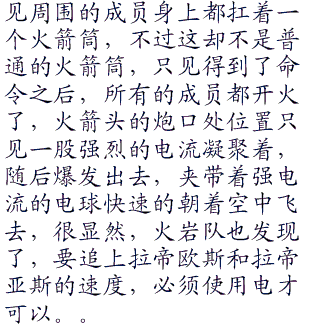 见周围的成员身上都扛着一
个火箭筒，不过这却不是普
通的火箭筒，只见得到了命
令之后，所有的成员都开火
了，火箭头的炮口处位置只
见一股强烈的电流凝聚着，
随后爆发出去，夹带着强电
流的电球快速的朝着空中飞
去，很显然，火岩队也发现
了，要追上拉帝欧斯和拉帝
亚斯的速度，必须使用电才
可以。。